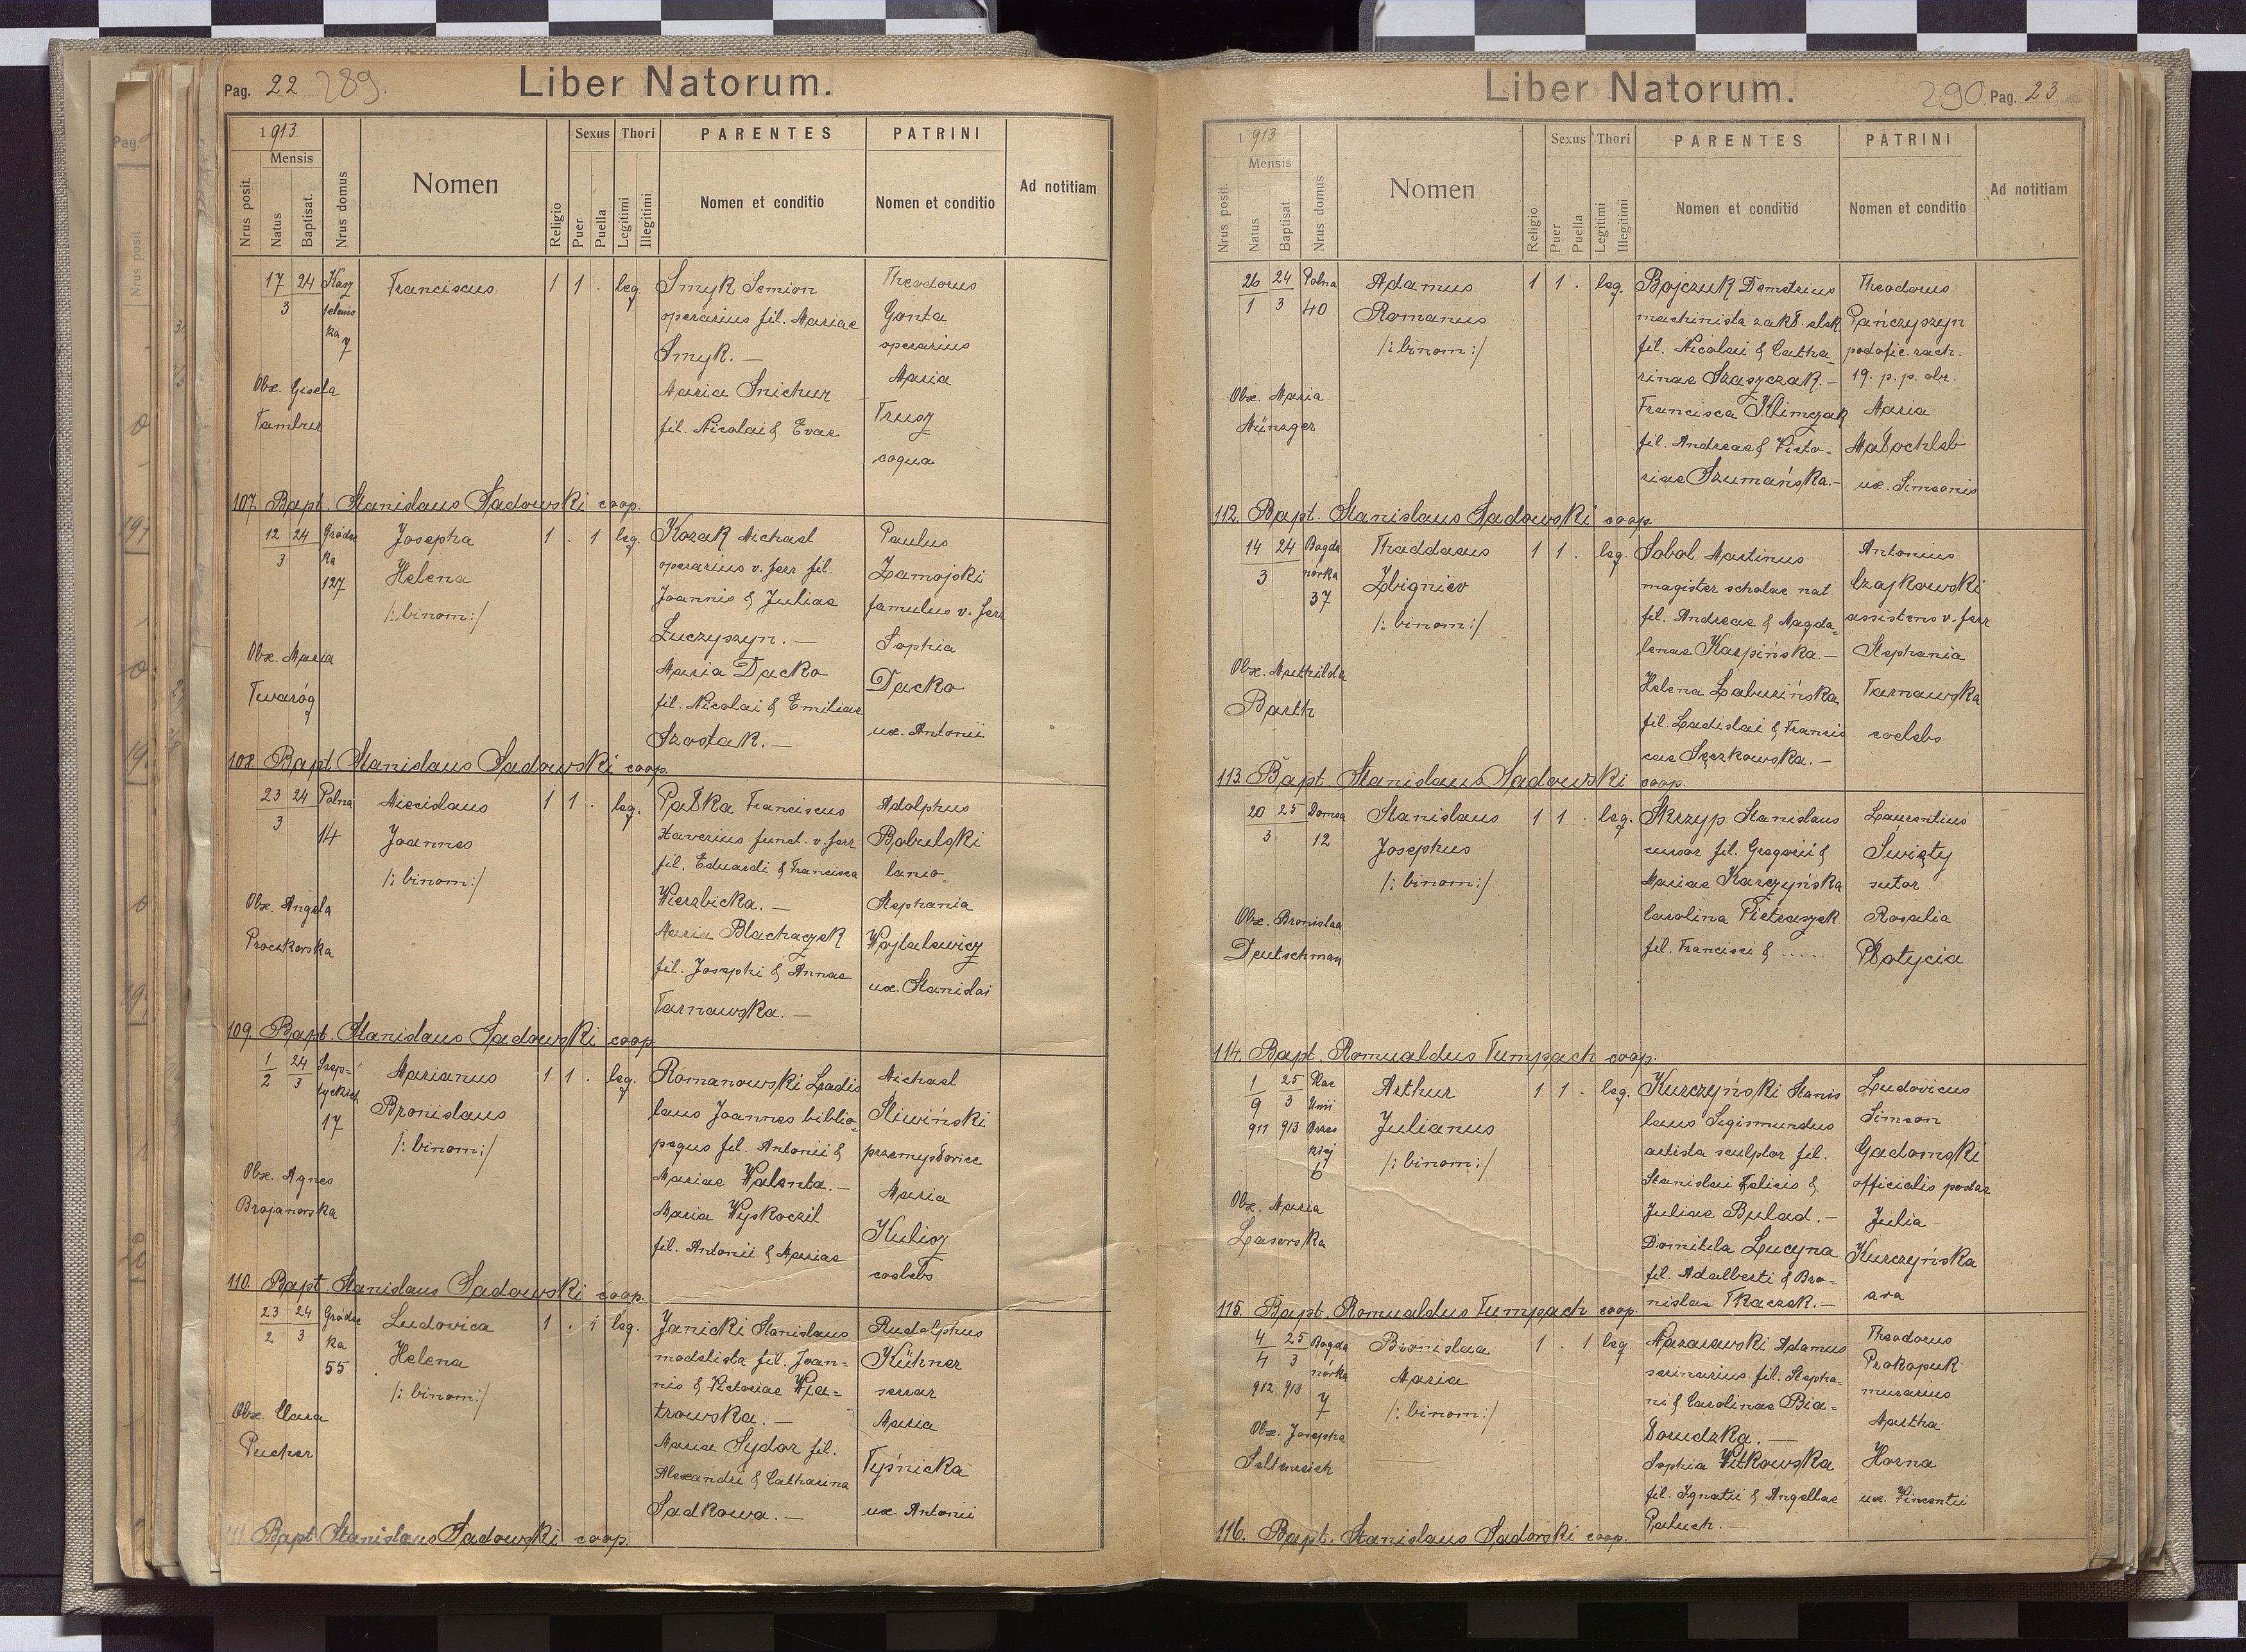 Pag. 22 289.
Liber Natorum.
1913
Mensis
Nrus posit.
Natus
Baptisat.
Nrus domus
Nomen
Religio
Sexus
Puer
Puella
Thori
Legitimi
Illegitimi
PARENTES
Nomen et conditio
PATRINI
Nomen et conditio
Ad notitiam
17 24
3
7
Franciscus
1 1 . leg.
Obx. Gisela
Tambur
Smyk Semion
operarius fil. Mariae
Smyk. —
Maria Snichur
fil. Nicolai & Evae
Theodorus
Gonta
operarius
Maria
Trusz
coqua
107. Bapt. Stanislaus Sadowski coop.
12 24 Gródec
3 ka
127
Josepha
Helena
/: binom:/
1 . 1 leg.
Obx. Maria
Twaróg
Kozak Michael
operarius v. ferr fil.
Joannis & Juliae
Łuczyszyn. —
Maria Dacko
fil. Nicolai & Emiliae
Szostak. —
Paulus
Zamojski
famulus v. ferr
Sophia
Dacko
ux. Antonii
108. Bapt. Stanislaus Sadowski coop.
23 24 Polna
3 14
Miecislaus
Joannes
/: binom:/
1 1 . leg.
Obx. Angela
Proczkowska
Pałka Franciscus
Xaverius funct. v. ferr
fil. Eduardi & Francisca
Wierzbicka. —
Maria Blachaczek
fil. Josephi & Annae
Tarnawska. —
Adolphus
Babulski
lanio
Stephania
Wojtalewicz
ux. Stanislai
109. Bapt. Stanislaus Sadowski coop.
1 24 Szep-
2 3 tyckich
17
Marianus
Bronislaus
/: binom:/
1 1 . leg.
Obx. Agnes
Brajanowska
Romanowski Ladis
laus Joannes biblio-
pegus fil. Antonii &
Mariae Walenta. —
Maria Wyskoczil
fil. Antonii & Mariae
Michael
Śliwiński
przemysłowiec
Maria
Kulisz
coelebs
110. Bapt Stanislaus Sadowski coop.
23 24 Gródec
2 3 ka
55
Ludovica
Helena
/: binom:/
1 . 1 leg.
Obx. Clara
Pucher
Janicki Stanislaus
modelista fil. Joan-
nis & Victoriae Wia-
trowska. —
Maria Sydor fil.
Alexandri & Catharina
Sadkowa. —
Rudolphus
Kühner
serrar
Maria
Typnicka
ux. Antonii
111. Bapt Stanislaus Sadowski coop.
Liber Natorum.
290. Pag. 23
1913
Mensis
Nrus posit.
Natus
Baptisat.
Nrus domus
Nomen
Religio
Sexus
Puer
Puella
Thori
Legitimi
Illegitimi
PARENTES
Nomen et conditio
PATRINI
Nomen et conditio
Ad notitiam
26 24 Polna
1 3 40
Adamus
Romanus
/: binom:/
1 1 . leg.
Obx. Maria
Münzger
Bojczuk Demetrius
machinista zakł. elek
fil. Nicolai & Catha-
rinae Staszczak. —
Francisca Klimczak
fil. Andreae & Victo-
riae Szumańska. —
Theodorus
Pańczyszyn
podofic. rach.
19. p. p. obr.
Maria
Małochleb
ux. Simeonis
112. Bapt. Stanislaus Sadowski coop.
14 24 Bogda
3 nówka
37
Thaddaeus
Zbigniev
/: binom:/
1 1 . leg.
Obx. Mathilda
Barth
Sobol Martinus
magister scholae nat.
fil. Andreae & Magda-
lenae Karpińska. —
Helena Łabuzińska
fil. Ladislai & Francis
cae Sęczkowska. —
Antonius
Czajkowski
assistens v. ferr
Stephania
Tarnawska
coelebs
113. Bapt. Stanislaus Sadowski coop.
20 25
3 12
Stanislaus
Josephus
/: binom:/
1 1 . leg.
Obx. Bronislaa
Deutschman
Skrzyp Stanislaus
cursor fil. Gregorii &
Mariae Karczyńska
Carolina Pietraszek
fil. Francisci & .....
Laurentius
Święty
sutor
Rosalia
Płotycia
114. Bapt. Romualdus Tumpach coop.
1 25 Plac
9 3 Unii
911 913 Brzes
kiej
6
Arthur
Julianus
/: binom:/
1 1 . leg.
Obx. Maria
Lasowska
Kurczyński Stanis
laus Sigismundus
artista sculptor fil.
Stanislai Felicis &
Juliae Bulad. —
Domitila Lucyna
fil. Adalberti & Bro-
nislae Tkaczek. —
Ludovicus
Simeon
Gadomski
officialis
Julia
Kurczyńska
ava
115. Bapt. Romualdus Tumpach coop.
4 25 Bogda
4 3 nówka
912 913 7
Bronislaa
Maria
/: binom:/
1 . 1 leg.
Obx. Josepha
Seltenreich
Nazarowski Adamus
scriniarius fil. Stepha-
ni & Carolinae Bia-
łoudzka. —
Sophia Witkowska
fil. Ignatii & Angellae
Paluch. —
Theodorus
Prokopuk
murarius
Martha
Horna
ux. Vincentii
116. Bapt. Stanislaus Sadowski coop.